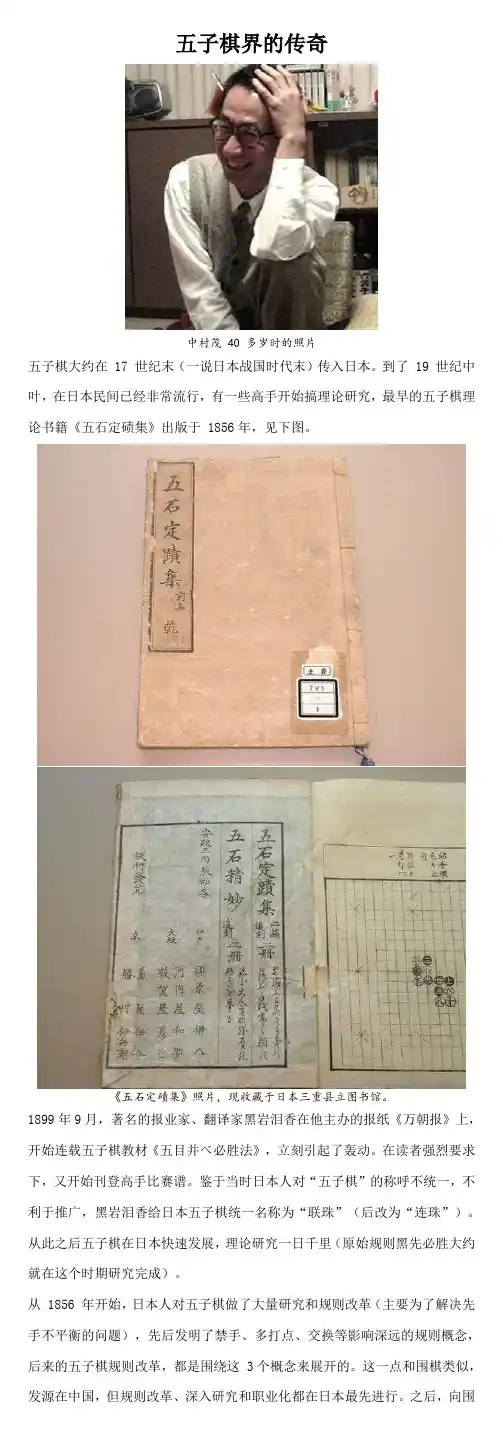 五子棋界的传奇
中村茂 40 多岁时的照片
五子棋大约在 17 世纪末（一说日本战国时代末）传入日本。到了 19 世纪中
叶，在日本民间已经非常流行，有一些高手开始搞理论研究，最早的五子棋理
论书籍《五石定碛集》出版于 1856年，见下图。
五石定蹟集
五石定蹟集
五石精妙
《五石定碛集》照片，现收藏于日本三重县立图书馆。
1899年9月，著名的报业家、翻译家黑岩泪香在他主办的报纸《万朝报》上，
开始连载五子棋教材《五目并べ必胜法》，立刻引起了轰动。在读者强烈要求
下，又开始刊登高手比赛谱。鉴于当时日本人对“五子棋”的称呼不统一，不
利于推广，黑岩泪香给日本五子棋统一名称为“联珠”（后改为“连珠”）。
从此之后五子棋在日本快速发展，理论研究一日千里（原始规则黑先必胜大约
就在这个时期研究完成）。
从 1856 年开始，日本人对五子棋做了大量研究和规则改革（主要为了解决先
手不平衡的问题），先后发明了禁手、多打点、交换等影响深远的规则概念，
后来的五子棋规则改革，都是围绕这 3个概念来展开的。这一点和围棋类似，
发源在中国，但规则改革、深入研究和职业化都在日本最先进行。之后，向围